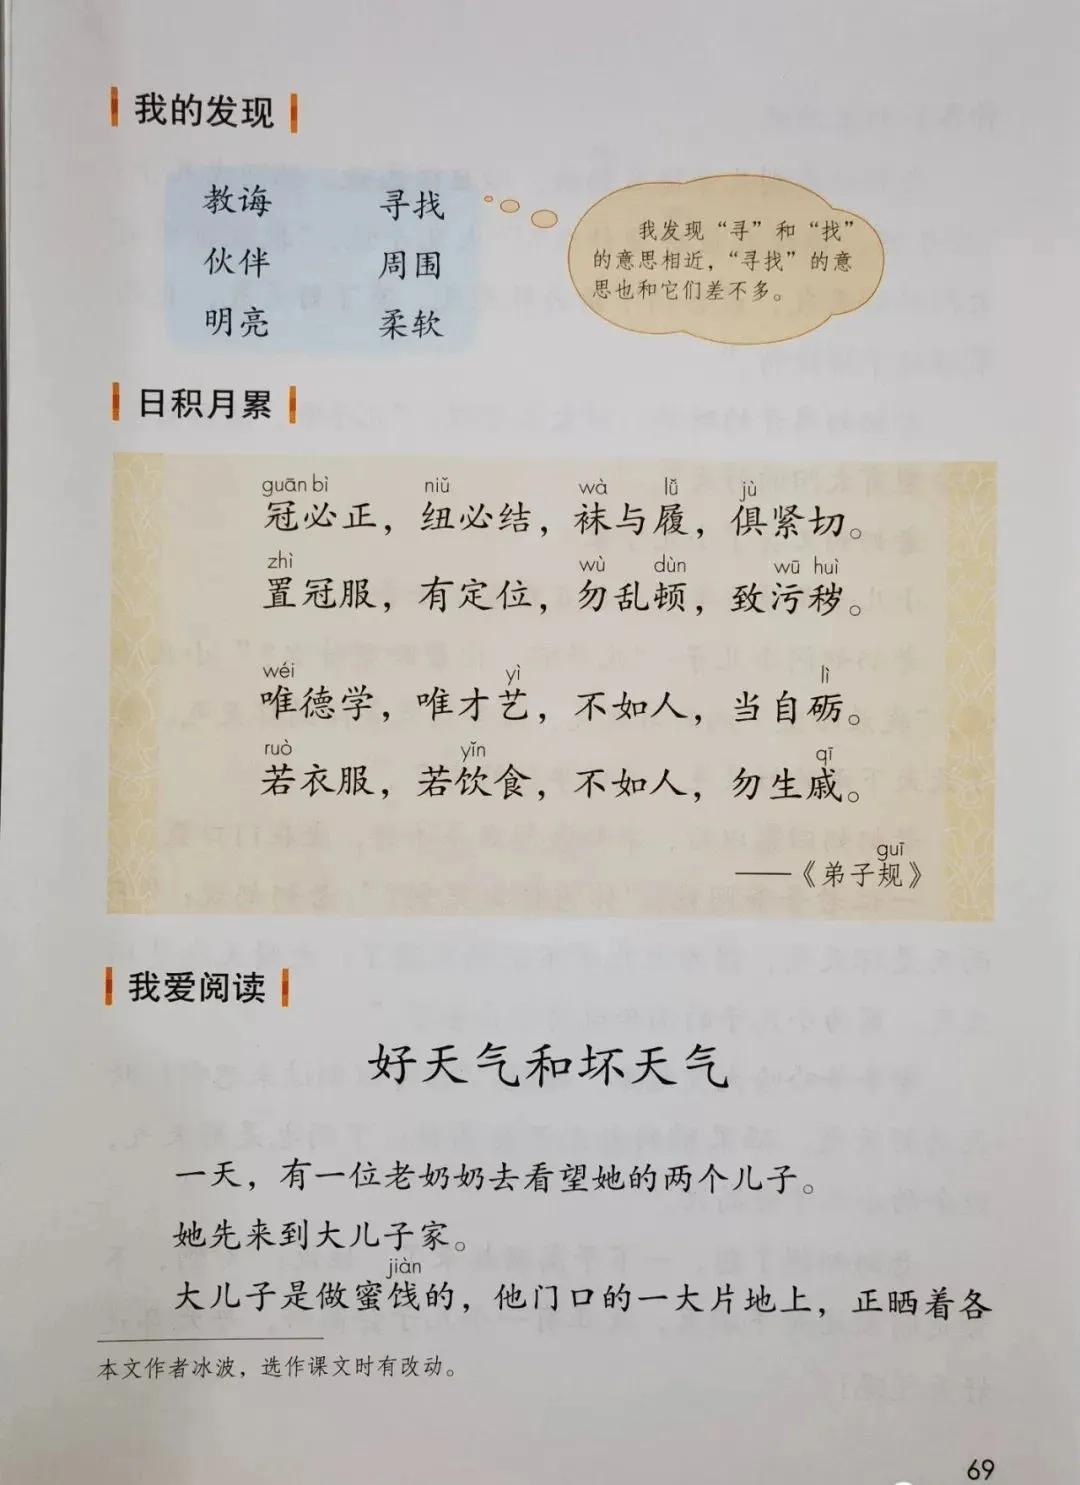 我的发现
教诲 寻找
伙伴 周围
明亮 柔软
我发现“寻”和“找”
的意思相近，“寻找”的意
思也和它们差不多。
日积月累
guān bì niǔ wà lǚ jù
冠必正，纽必结，袜与履，俱紧切。
zhì wù dùn wū huì
置冠服，有定位，勿乱顿，致污秽。
wéi yì lì
唯德学，唯才艺，不如人，当自砺。
ruò yǐn qī
若衣服，若饮食，不如人，勿生戚。
guī
——《弟子规》
我爱阅读
好天气和坏天气
一天，有一位老奶奶去看望她的两个儿子。
她先来到大儿子家。
jiàn
大儿子是做蜜饯的，他门口的一大片地上，正晒着各
本文作者冰波，选作课文时有改动。
69